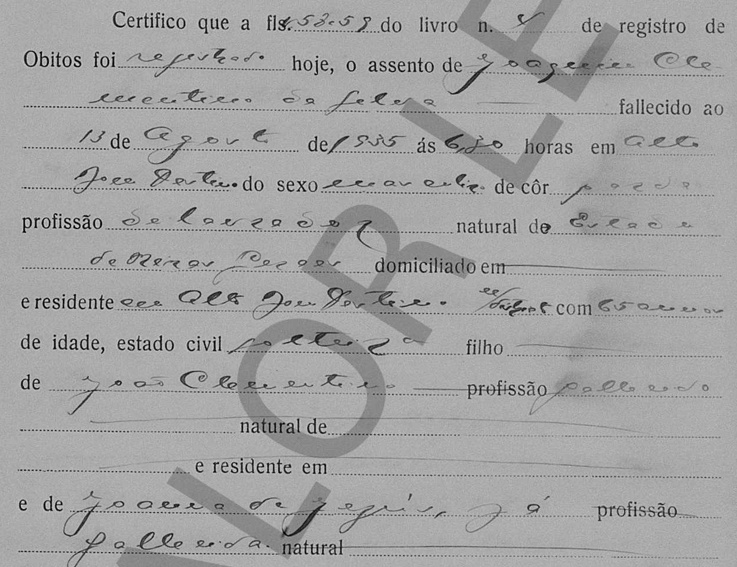 Certifico que a fls. 58.59 do livro n. V de registro de
Obitos foi registrado hoje, o assento de Joaquim Cle-
mentino da Silva fallecido ao
13 de Agosto de 1935 ás 6,30 horas em Alto
José do sexo masculino de côr parda
profissão de lavrador natural de Estado
de Minas Geraes domiciliado em
e residente em Alto José com 65 annos
de idade, estado civil solteiro filho
de João Clementino profissão fallecido
natural de
e residente em
e de Joanna de Jesus, já profissão
fallecida. natural
VALOR LE